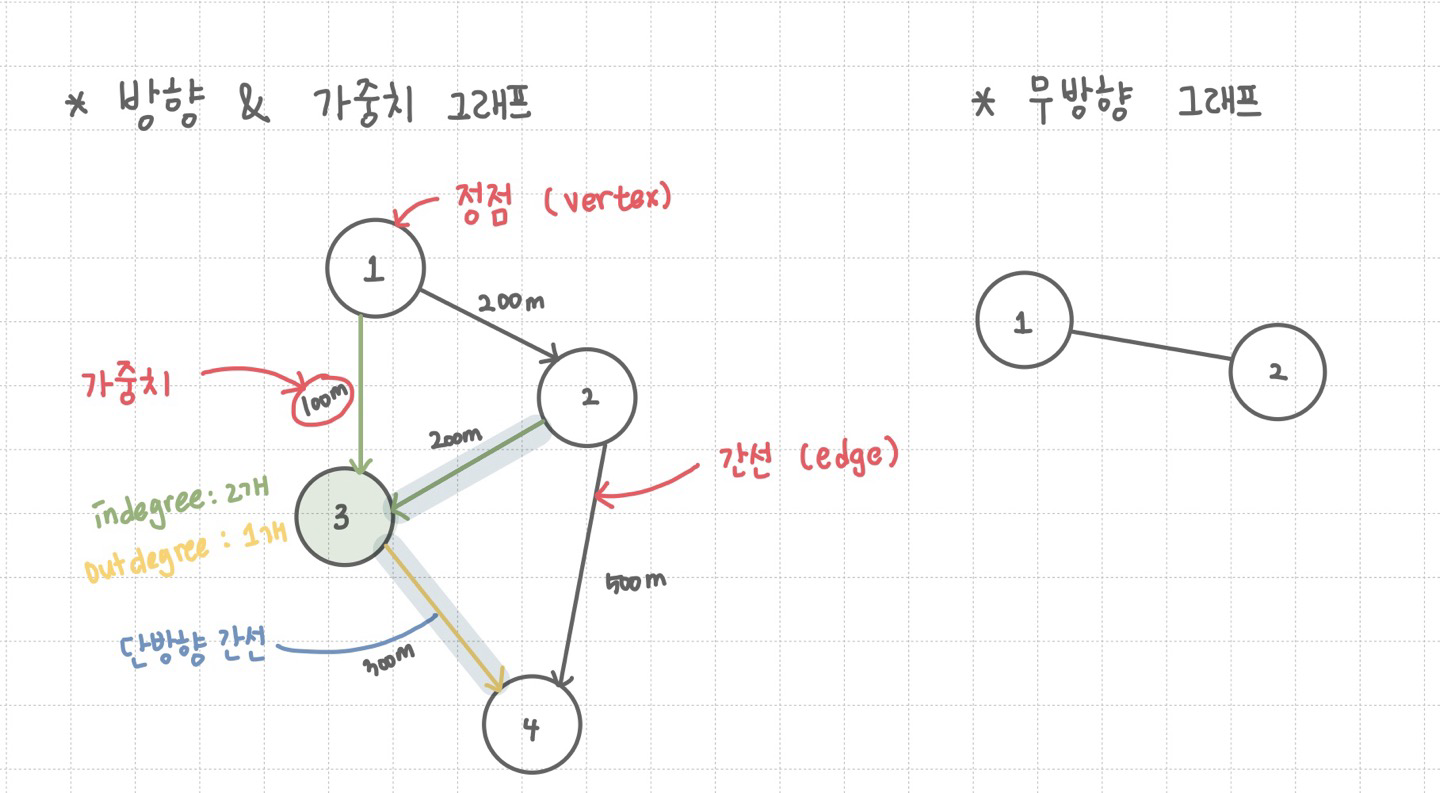 * 방향 & 가중치 그래프
* 무방향 그래프
정점 (vertex)
1
200m
가중치
100m
2
200m
간선 (edge)
indegree: 2개
3
outdegree : 1개
500m
단방향 간선
300m
4
1
2